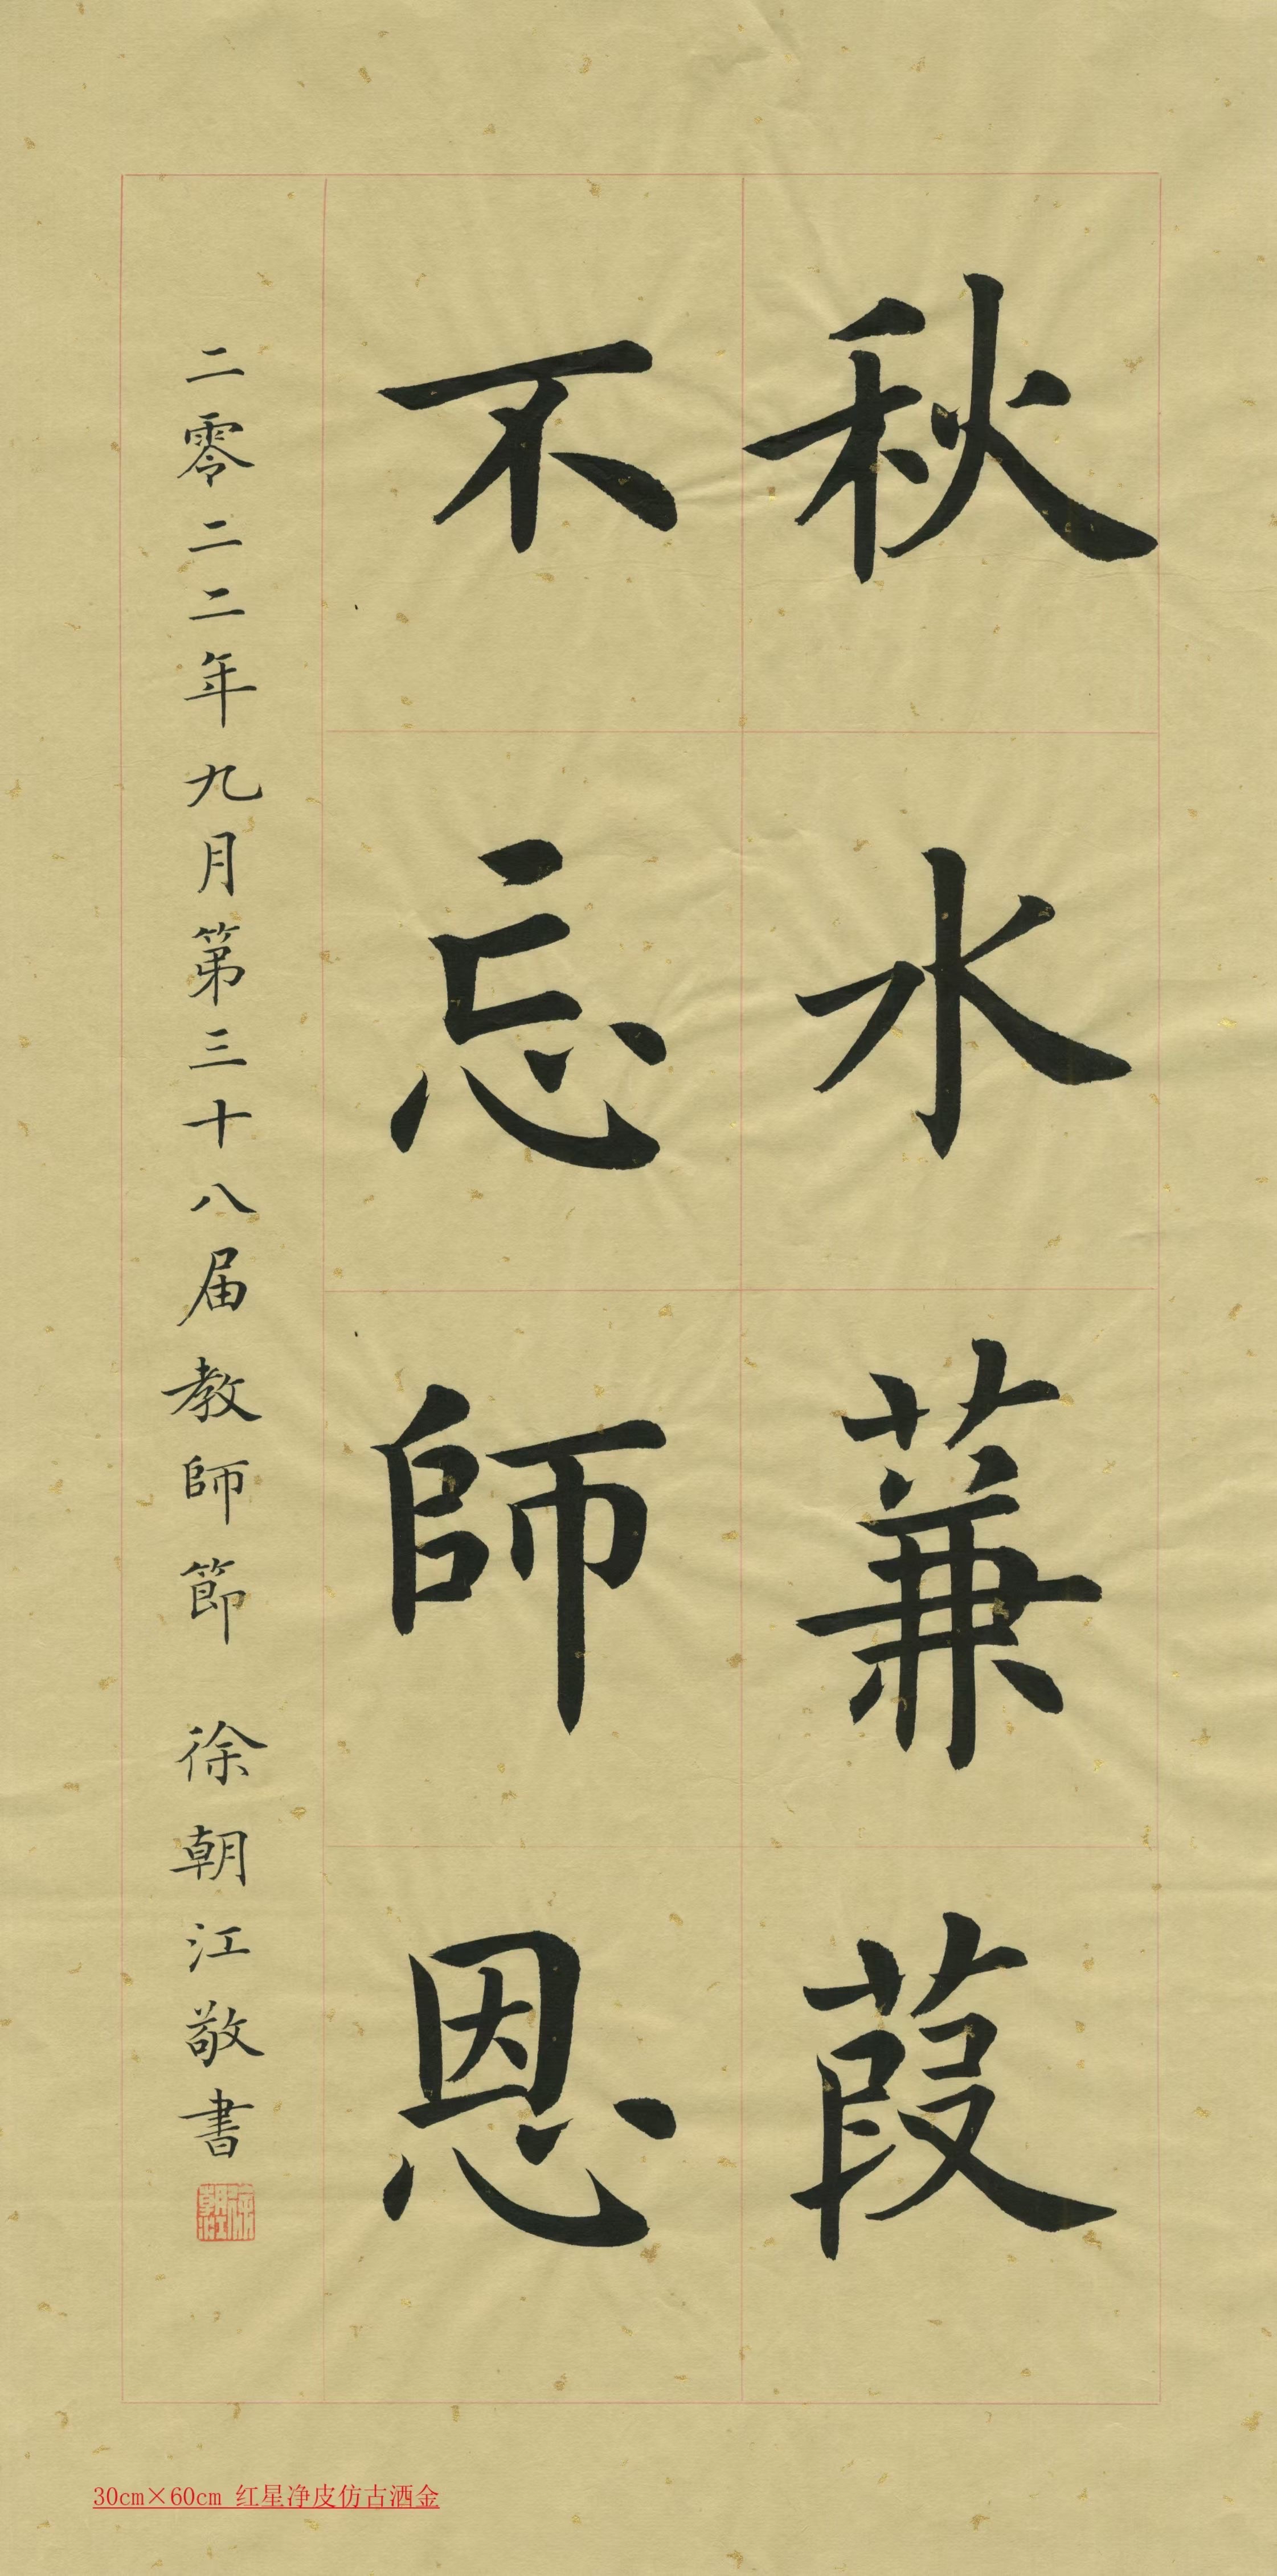 秋水蒹葭
不忘師恩
二零二二年九月第三十八届教師節 徐朝江敬書
徐朝江
30cm×60cm 红星净皮仿古洒金